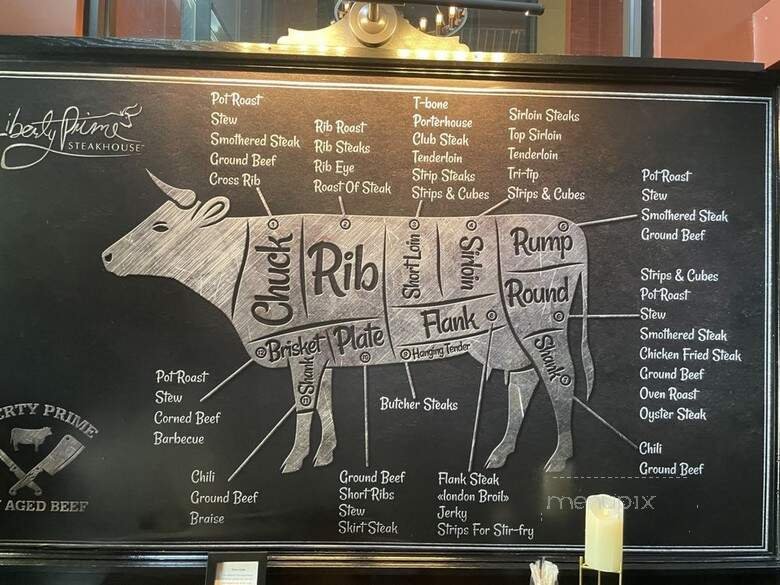 Liberty Prime
STEAKHOUSE
Pot Roast
Stew
Smothered Steak
Ground Beef
Cross Rib
Rib Roast
Rib Steaks
Rib Eye
Roast Of Steak
T-bone
Porterhouse
Club Steak
Tenderloin
Strip Steaks
Strips & Cubes
Sirloin Steaks
Top Sirloin
Tenderloin
Tri-tip
Strips & Cubes
Pot Roast
Stew
Smothered Steak
Ground Beef
Strips & Cubes
Pot Roast
Stew
Smothered Steak
Chicken Fried Steak
Ground Beef
Oven Roast
Oyster Steak
Chili
Ground Beef
Chuck
Rib
Short Loin
Sirloin
Rump
Round
Flank
Hanging Tender
Brisket
Plate
Shank
Shank
Pot Roast
Stew
Corned Beef
Barbecue
Butcher Steaks
Chili
Ground Beef
Braise
Ground Beef
Short Ribs
Stew
Skirt Steak
Flank Steak
«london Broil»
Jerky
Strips For Stir-fry
ERTY PRIME
AGED BEEF
menupix